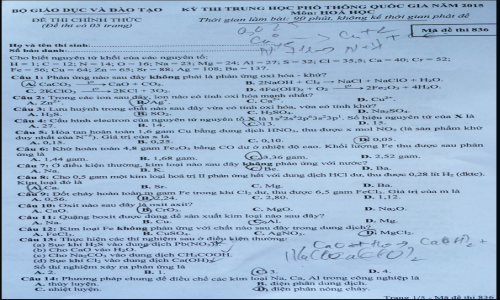 BỘ GIÁO DỤC VÀ ĐÀO TẠO
KỲ THI TRUNG HỌC PHỔ THÔNG QUỐC GIA NĂM 2015
ĐỀ THI CHÍNH THỨC
Môn: HOÁ HỌC
(Đề thi có 05 trang)
Thời gian làm bài: 90 phút, không kể thời gian phát đề
Mã đề thi 836
Họ và tên thí sinh:
Số báo danh:
Cho biết nguyên tử khối của các nguyên tố:
H = 1; C = 12; N = 14; O = 16; Na = 23; Mg = 24; Al = 27; S = 32; Cl = 35,5; Ca = 40; Cr = 52;
Fe = 56; Cu = 64; Zn = 65; Sr = 88; Ag = 108; Ba = 137.
Câu 1: Phản ứng nào sau đây không phải là phản ứng oxi hóa - khử?
A. CaCO₃ → CaO + CO₂.
B. 2NaOH + Cl₂ → NaCl + NaClO + H₂O.
C. 2KClO₃ → 2KCl + 3O₂.
D. 4Fe(OH)₂ + O₂ → 2Fe₂O₃ + 4H₂O.
Câu 2: Trong các ion sau đây, ion nào có tính oxi hóa mạnh nhất?
A. Zn²⁺.
B. Ag⁺.
C. Ca²⁺.
D. Cu²⁺.
Câu 3: Lưu huỳnh trong chất nào sau đây vừa có tính oxi hóa, vừa có tính khử?
A. H₂S.
B. SO₂.
C. H₂SO₄.
D. Na₂SO₄.
Câu 4: Cấu hình electron của nguyên tử nguyên tố X là 1s²2s²2p⁶3s²3p¹. Số hiệu nguyên tử của X là
A. 27.
D. 15.
Câu 5: Hòa tan hoàn toàn 1,6 gam Cu bằng dung dịch HNO₃, thu được x mol NO₂ (là sản phẩm khử
duy nhất của N⁺⁵). Giá trị của x là
A. 0,15.
B. 0,25.
C. 0,10.
D. 0,05.
Câu 6: Khử hoàn toàn 4,8 gam Fe₂O₃ bằng CO dư ở nhiệt độ cao. Khối lượng Fe thu được sau phản
ứng là
A. 1,44 gam.
B. 1,68 gam.
C. 3,36 gam.
D. 2,52 gam.
Câu 7: Ở điều kiện thường, kim loại nào sau đây không phản ứng với nước?
A. Na.
B. K.
C. Be.
D. Ba.
Câu 8: Cho 0,5 gam một kim loại hoá trị II phản ứng hết với dung dịch HCl dư, thu được 0,28 lít H₂ (đktc).
Kim loại đó là
A. Ca.
B. Sr.
C. Mg.
D. Ba.
Câu 9: Đốt cháy hoàn toàn m gam Fe trong khí Cl₂ dư, thu được 6,5 gam FeCl₃. Giá trị của m là
A. 0,56.
B. 2,24.
C. 2,80.
D. 1,12.
Câu 10: Oxit nào sau đây là oxit axit?
A. CaO.
B. CrO₃.
C. MgO.
D. Na₂O.
Câu 11: Quặng boxit được dùng để sản xuất kim loại nào sau đây?
A. Na.
D. Mg.
Câu 12: Kim loại Fe không phản ứng với chất nào sau đây trong dung dịch?
A. FeCl₃.
B. CuSO₄.
C. AgNO₃.
D. MgCl₂.
Câu 13: Thực hiện các thí nghiệm sau ở điều kiện thường:
(a) Sục khí H₂S vào dung dịch Pb(NO₃)₂.
(b) Cho CaO vào H₂O.
(c) Cho Na₂CO₃ vào dung dịch CH₃COOH.
(d) Sục khí Cl₂ vào dung dịch Ca(OH)₂.
Số thí nghiệm xảy ra phản ứng là
A. 2.
B. 1.
C. 3.
D. 4.
Câu 14: Phương pháp chung để điều chế các kim loại Na, Ca, Al trong công nghiệp là
A. thủy luyện.
B. điện phân dung dịch.
C. nhiệt luyện.
D. điện phân nóng chảy.
Trang 1/5 - Mã đề thi 836